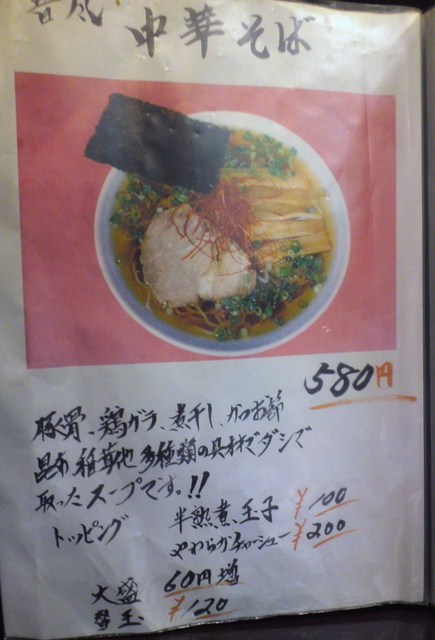 昔風
中華そば
580円
豚骨、鶏ガラ、煮干し、かつお節
昆布、椎茸他 多種類の具材でダシで
取ったスープです。!!
トッピング 半熟煮玉子 ¥100
やわらかチャーシュー ¥200
大盛 60円増
替玉 ¥120